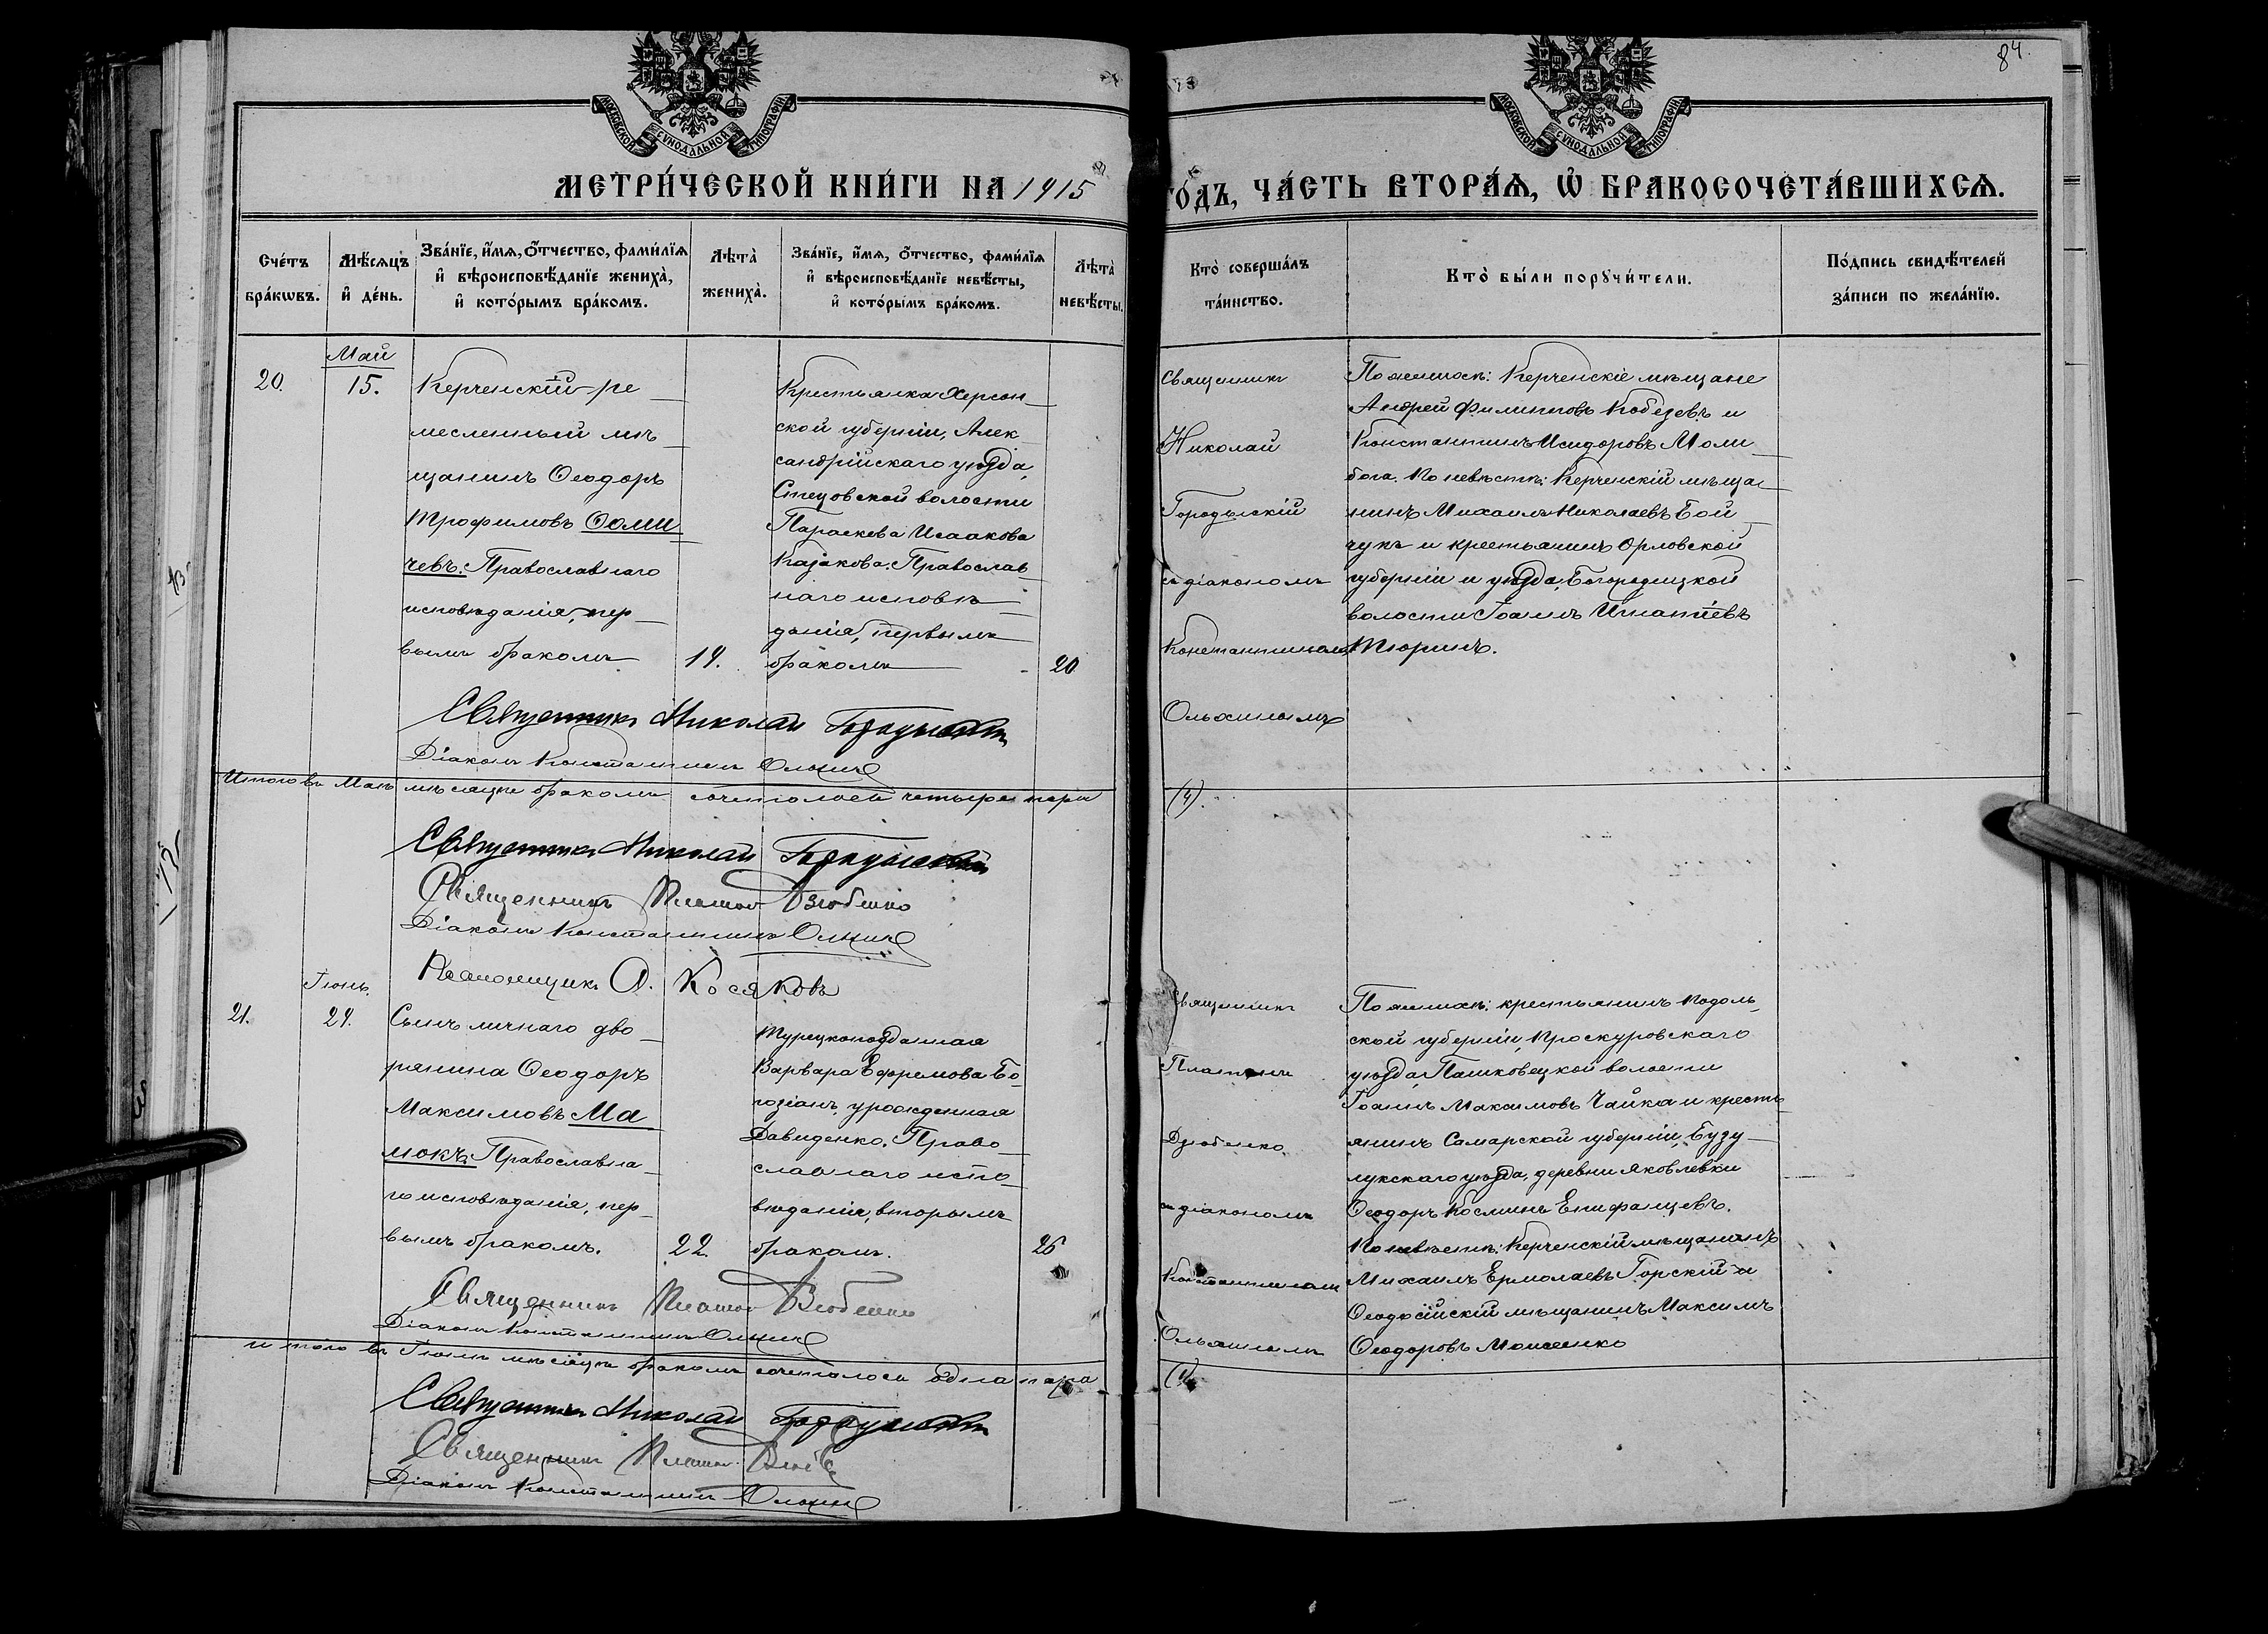 84.
МОСКОВСКОЙ СѴНОДАЛЬНОЙ ТИПОГРАФІИ
МОСКОВСКОЙ СѴНОДАЛЬНОЙ ТИПОГРАФІИ
МЕТРИ́ЧЕСКОЙ КНИ́ГИ НА 1915
ГО́ДЪ, ЧА́СТЬ ВТОРА́Ѧ, Ѡ҆ БРАКОСОЧЕТА́ВШИХСѦ.
Сче́тъ бра́кѡвъ.
Мѣ́сѧцъ и҆ де́нь.
Зва́нїе, и҆́мѧ, ѻ҆́тчество, фами́лїѧ
и҆ вѣроисповѣ́данїе жениха̀,
и҆ кото́рымъ бра́комъ.
Лѣта̀ жениха̀.
Зва́нїе, и҆́мѧ, ѻ҆́тчество, фами́лїѧ
и҆ вѣроисповѣ́данїе невѣ́сты,
и҆ кото́рымъ бра́комъ.
Лѣта̀ невѣ́сты.
Кто̀ соверша́лъ
та́инство.
Кто̀ бы́ли порꙋчи́тели.
По́дпись свидѣ́телей
за́писи по жела́нїю.
Май
20.
15.
Керченскій ре
месленный мѣ
щанинъ Ѳеодоръ
Трофимовъ Ѳоми
чевъ. Православнаго
исповѣданія, пер
вымъ бракомъ
19.
Крестьянка Херсон
ской губерніи, Алек
сандрійскаго уѣзда,
Стецовской волости
Параскева Исаакова
Казакова. Православ
наго исповѣ
данія, первымъ
бракомъ
20
Священникъ
Николай
Городыскій
съ діакономъ
Константиномъ
Ольхинымъ
По женихѣ: Керченскіе мѣщане
Андрей Филипповъ Кобезевъ и
Константинъ Исидоровъ Моли
бога. По невѣстѣ: Керченскій мѣща
нинъ Михаилъ Николаевъ Бой
чукъ и крестьянинъ Орловской
губерніи и уѣзда, Богородицкой
волости Іоаннъ Игнатіевъ
Тюринъ.
Священникъ Николай Городыскій
Діаконъ Константинъ Ольхинъ
Итого въ Маѣ мѣсяцѣ бракомъ сочеталось четыре пары
(4).
Священникъ Николай Городыскій
Священникъ Платонъ Дзюбенко
Діаконъ Константинъ Ольхинъ
Псаломщикъ Косяковъ
Іюнь.
21.
24.
Сынъ личнаго дво
рянина Ѳеодоръ
Максимовъ Ма
мокъ. Православна
го исповѣданія, пер
вымъ бракомъ.
22.
Турецкоподданная
Варвара Ефремова Бо
гозіанъ, урожденная
Давиденко. Право
славнаго испо
вѣданія, вторымъ
бракомъ.
26
Священникъ
Платонъ
Дзюбенко
съ діакономъ
Константиномъ
Ольхинымъ
По женихѣ: крестьянинъ Подоль
ской губерніи, Проскуровскаго
уѣзда, Пашковецкой волости
Іоаннъ Максимовъ Чайка и кресть
янинъ Самарской губерніи, Бузу
лукскаго уѣзда, деревни Яковлевки
Ѳеодоръ Косминъ Епифанцевъ.
По невѣстѣ: Керченскій мѣщанинъ
Михаилъ Ермолаевъ Горскій и
Ѳеодосійскій мѣщанинъ Максимъ
Ѳеодоровъ Моисеенко
Священникъ Платонъ Дзюбенко
Діаконъ Константинъ Ольхинъ
Итого въ Іюнѣ мѣсяцѣ бракомъ сочеталось одна пара
(1)
Священникъ Николай Городыскій
Священникъ Платонъ
Діаконъ Константинъ Ольхинъ